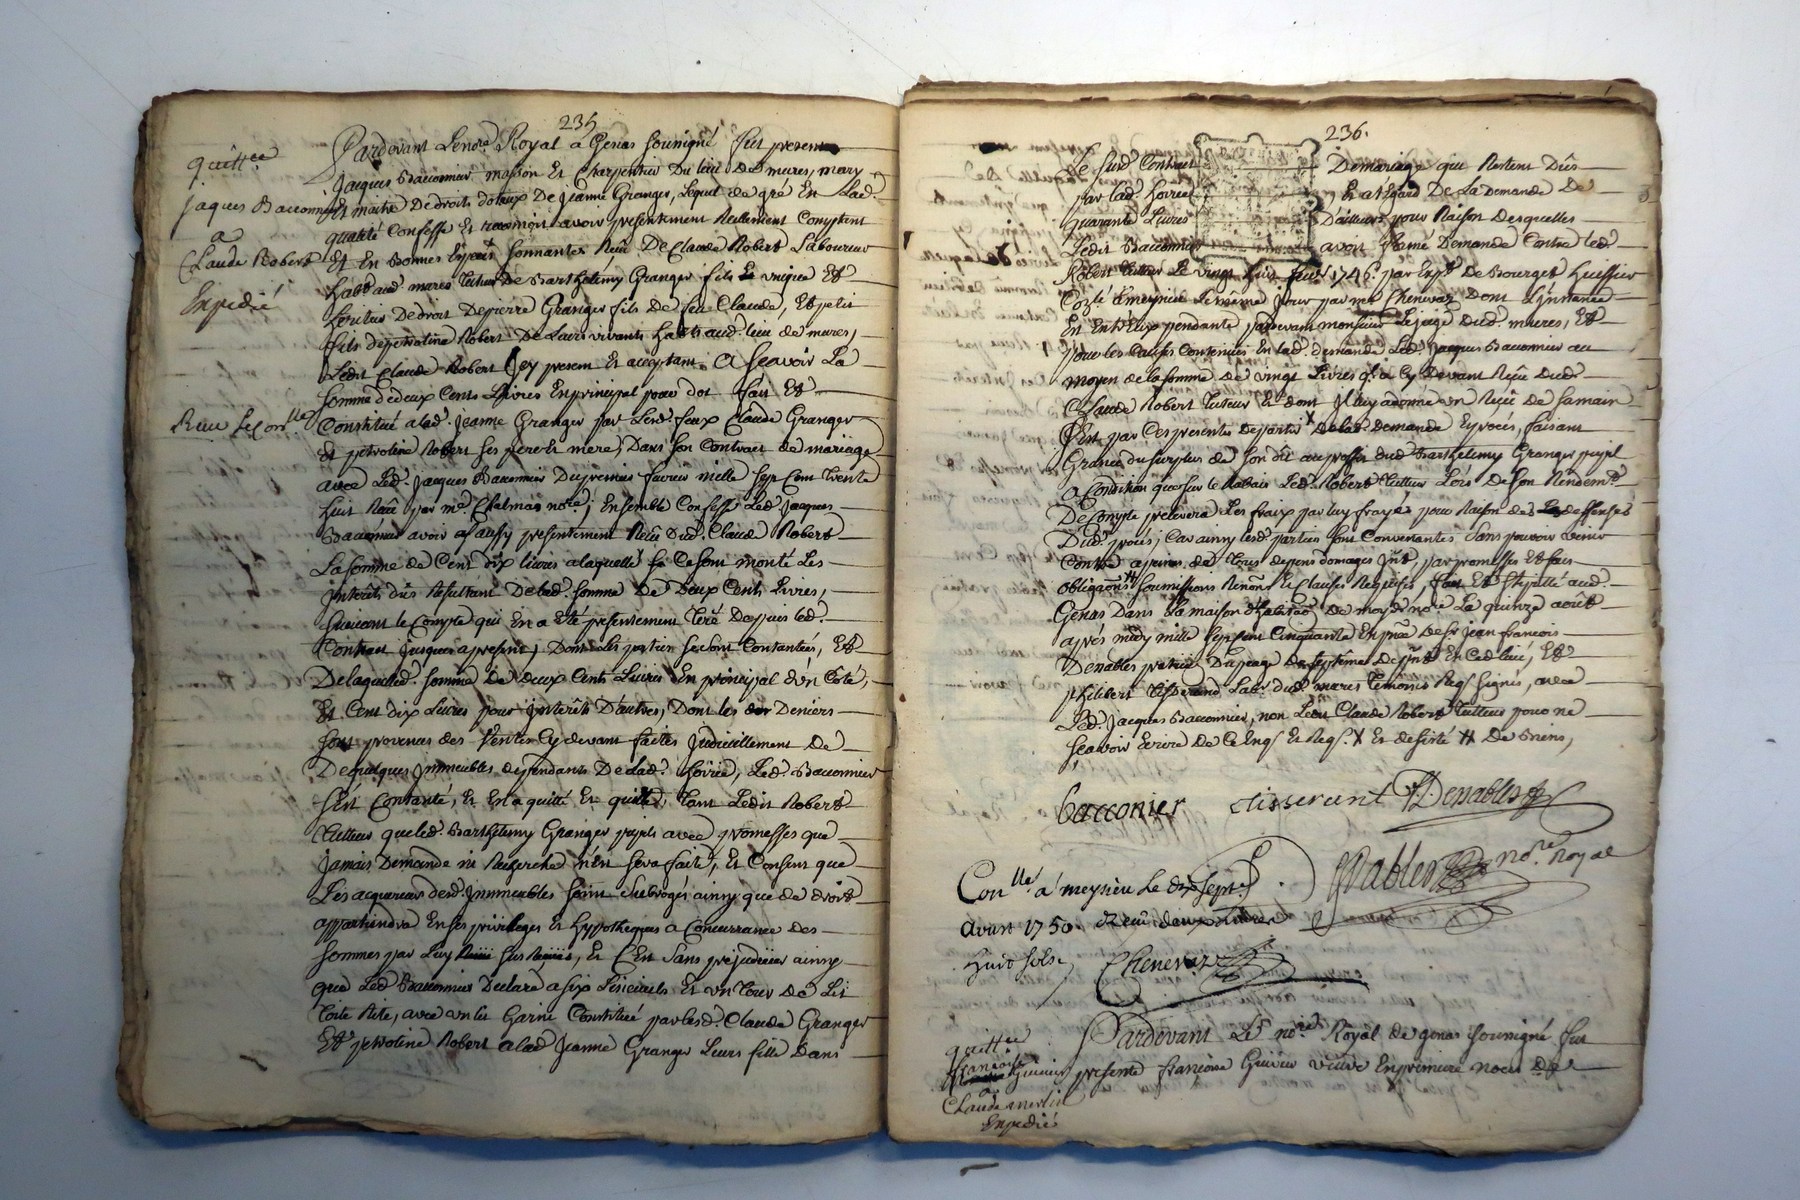 235
quittce
jaques Bacconnier
a
Claude Robert
Expedié
Pardevant Lenore Royal a Genas soussigné fut present
jacques Bacconnier masson Et Charpentier Du lieu De mures, mary
Et maitre De droits dotaux De jeanne Granger, Lequel de gré En Lad.
qualité Confesse Et reconnoit avoir presentement Reellement Comptant
Et En Bonnes Espèces sonnantes Reçu De Claude Robert Laboureur
habt aud. mures tuteur De Barthelemy Granger fils Et unique Et
heritier De droit De pierre Granger fils De feu Claude, Et petit
fils de petroline Robert De Leurs vivants habts aud. lieu de mures,
Ledit Claude Robert Icy present Et acceptant. A Scavoir La
somme de deux Cents Livres En principal pour dot fait Et
Constitué a lad. jeanne Granger par Lesd. feux Claude Granger
Et petroline Robert ses pere et mere, Dans son Contract de mariage
avec Led. jacques Bacconnier Du premier fevrier mille Sept Cent trente
huit Reçu par me Chalmas nore; Ensemble Confesse Led. jacques
Bacconnier avoir aussy presentement Reçu Dud. Claude Robert
La somme de Cent dix livres a laquelle se Ce sont monté Les
jnterêts dûs Resultant De lad. somme De Deux Cents Livres,
suivant le Compte qui En a Eté presentement tiré Depuis led.
Contract jusques a present, Dont Les parties se sont Contantées, Et
De laquelled. somme De deux Cents Livres En principal d'un Côté,
Et Cent dix Livres pour jnterêts D'autres, Dont les Deniers
sont provenus des Ventes Cy devant faites judiciellement De
De quelques jmmeubles dependants De Lad. hoirie, Led. Bacconnier
s'est Contanté, Et En a quitté Et quitte, tant Ledit Robert
tuteur que led. Barthelemy Granger pupil avec promesses que
jamais Demande ni Recherche n'en sera faite, Et Consent que
Les acquereurs desd. jmmeubles soint subrogés ainsy que de droit
appartiendra En ses privileges Et hypotheques a Concurrance des
sommes par Luy sus Reçues, Et C'est sans prejudicier ainsy
que Led. Bacconnier Declare a six Linceuils Et un tour de Lit
toile Rite, avec un lit Garni Constitué par lesd. Claude Granger
Et petroline Robert a lad. jeanne Granger Leurs fille Dans
236.
Le susd. Contract De mariage qui Restent Dûs
par lad. hoirie, Et a l'egard De La Demande De
quarante Livres D'ailleurs pour Raison Desquelles
Ledit Bacconnier avoit formé Demande Contre led.
Robert tuteur Le vingt huit 1746. par Expt De Bourget huissier
Conlé a meysieu Le même jour par me Chenevaz Dont L'jnstance
En Entr'Eux pendante pardevant monsieur Le juge Dud. mures, Et
pour les Causes Contenües En lad. demande Led. jacques Bacconnier au
moyen de la somme De vingt Livres q'il a Cy Devant Reçüe Dud.
Claude Robert tuteur Et dont Il luy a donné un Reçu De sa main
s'Est par Ces presentes departis X De lad. Demande Et procés, faisant
Grace du surplus de son dû au proffit dud. Barthelemy Granger pupil
a Condition que sur le Rabais Led. Robert tuteur Lors De son Rendemt
De Compte prelevera Les fraix par luy frayés pour Raison des deffenses
Dud. procés, Car ainsy lesd. parties sont Convenantes sans pouvoir Venir
Contre a peines de tous depens domages Jnts par promesses Et sous
obligaons # soumissions Renonons Et Clauses Requises, fait Et stipullé aud.
Genas Dans La maison d'habitaon De moyd. nore Le quinze août
aprés midy mille sept Cent Cinquante En pnce de sr jean francois
Denables
philibert tisserand Labr dud. mures temoins Reqs signés, avec
Led. jacques Bacconnier, non Ledit Claude Robert tutteur pour ne
scavoir Ecrire De Ce Enqs Et Reqs. X Et desisté # De Biens,
bacconier tisserant Denables
nore Royal
Conlle a meysieu Le dix sept
Avust 1750. Reçu deux Livres
huit sols
Chenevaz
quittce
francoise Guivier
a
Claude merlin
Expedié
Pardevant Le nore Royal de genas soussigné fut
presente francoise Guivier veuve En premiere noces De